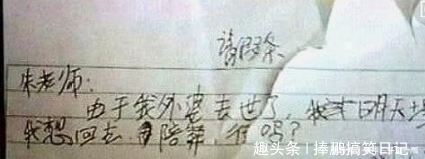 请假条
朱老师:
由于我外婆去世了,我 明天
我想回去 陪葬,行吗?
趣头条 | 捧鹏搞笑日记